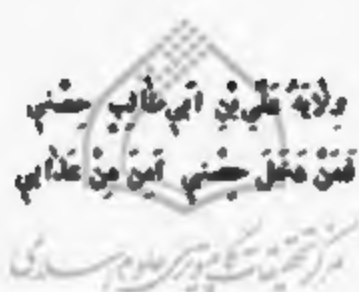 وِلايَةُ عَلِيِّ بْنِ اَبي‌طالِبٍ حِصْني
فَمَنْ دَخَلَ حِصْني اَمِنَ مِنْ عَذابي
مرکز تحقیقات کامپیوتری علوم اسلامی